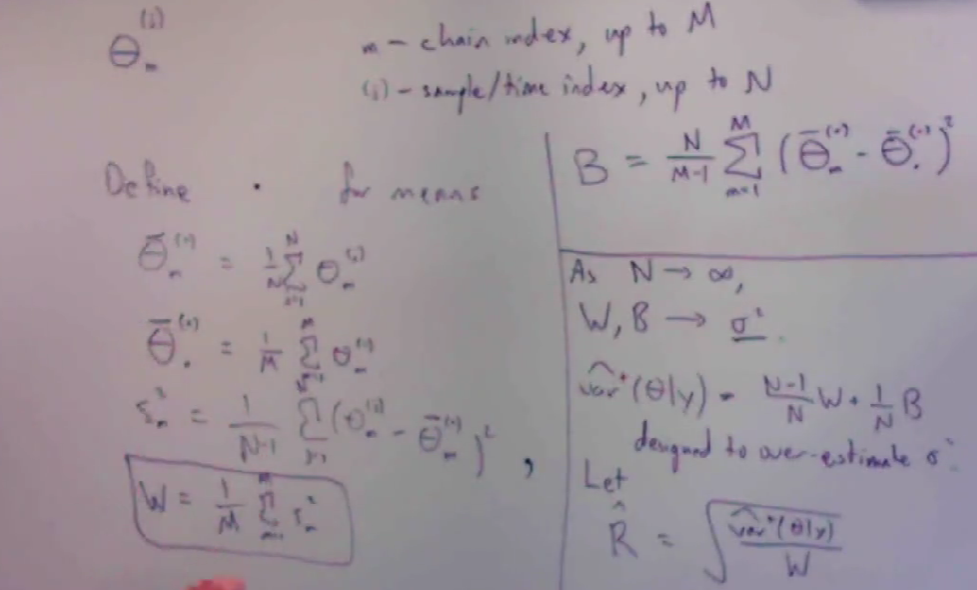 θ_m^(i)
m – chain index, up to M
(i) – sample/time index, up to N
Define · for means
θ̄_m^(·) = 1/N Σ_{i=1}^N θ_m^(i)
θ̄_·^(·) = 1/M Σ_{m=1}^M θ̄_m^(·)
s_m^2 = 1/(N-1) Σ_{i=1}^N (θ_m^(i) - θ̄_m^(·))^2 ,
W = 1/M Σ_{m=1}^M s_m^2
B = N/(M-1) Σ_{m=1}^M (θ̄_m^(·) - θ̄_·^(·))^2
As N → ∞,
W, B → σ^2.
var̂^+(θ|y) = (N-1)/N W + 1/N B
designed to over-estimate σ^2.
Let
R̂ = √(var̂^+(θ|y) / W)